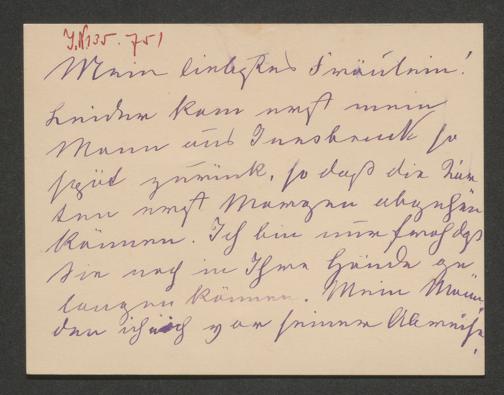 J.N 135.751
Mein liebstes Fräulein!
Leider kam erst mein
Mann aus Innsbruck so
spät zurück, so daß die Kar
ten erst Morgen abgehen
können. Ich bin nur froh daß
sie noch in Ihre Hände ge
langen können. Mein Mann,
den ich vor seiner Abreise